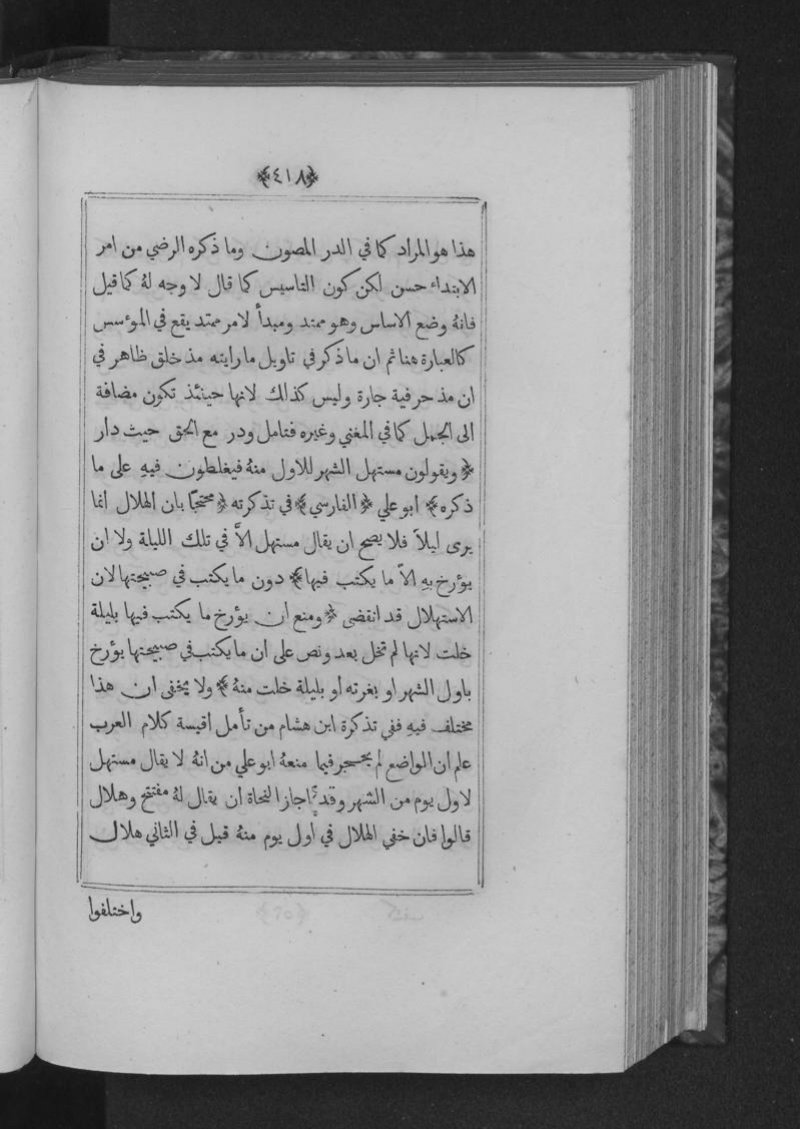 ﴿٤١٨﴾
هذا هو المراد كما في الدر المصون وما ذكره الرضي من امر
الابتداء حسن لكن كون التاسيس كما قال لا وجه لهُ كما قيل
فانهُ وضع الاساس وهو ممتد ومبدأ لامر ممتد يقع في المؤسس
كالعبارة هنا ثم ان ما ذكر في تاويل ما رايته مذ خلق ظاهر في
ان مذ حرفية جارة وليس كذالك لانها حينئذ تكون مضافة
الى الجمل كما في المغني وغيره فتامل ودر مع الحق حيث دار
﴿ويقولون مستهل الشهر للاول منهُ فيغلطون فيهِ على ما
ذكره﴾ ابو علي ﴿الفارسي﴾ في تذكرته ﴿محتجًا بان الهلال انما
يرى ليلاً فلا يصح ان يقال مستهل الاَّ في تلك الليلة ولا ان
يؤرخ بهِ الاَّ ما يكتب فيها﴾ دون ما يكتب في صبيحتها لان
الاستهلال قد انقضى ﴿ومنع ان يؤرخ ما يكتب فيها بليلة
خلت لانها لم تخل بعد ونص على ان ما يكتب في صبيحتها يؤرخ
باول الشهر او بغرته او بليلة خلت منهُ﴾ ولا يخفى ان هذا
مختلف فيهِ ففي تذكرة ابن هشام من تأمل اقيسة كلام العرب
علم ان المواضع لم يحجر فيما منعهُ ابو علي من انهُ لا يقال مستهل
لاول يوم من الشهر وقد اجاز النحاة ان يقال لهُ مفتتح وهلال
قالوا فان خفي الهلال في اول يوم منهُ قيل في الثاني هلال
واختلفوا